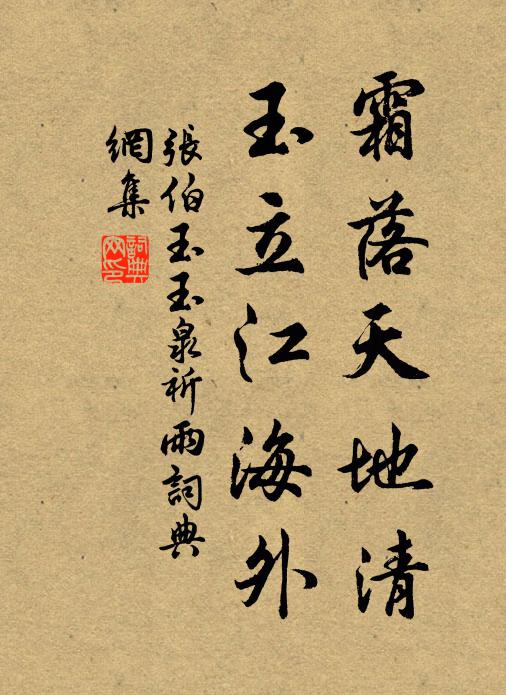 霜落天地清
玉立江海外
張伯玉玉泉祈雨詞典
網集
詞典
网印